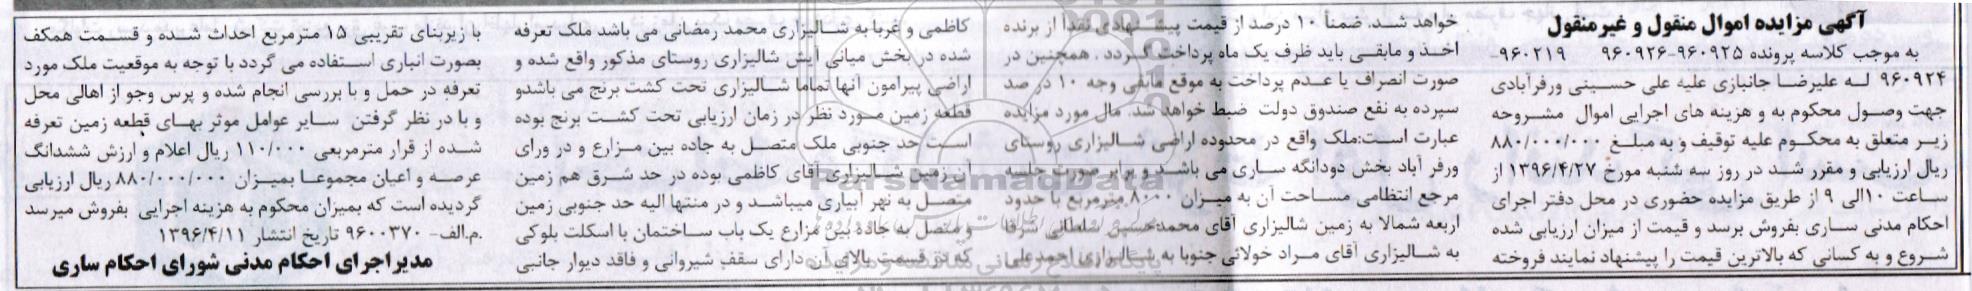 آگهی مزایده اموال منقول و غیرمنقول
به موجب کلاسه پرونده ۹۶۰۹۲۵-۹۶۰۹۲۶ ۹۶۰۲۱۹-
۹۶۰۹۲۴ له علیرضا جانبازی علیه علی حسینی ورفرآبادی
جهت وصول محکوم به و هزینه های اجرایی اموال مشروحه
زیر متعلق به محکوم علیه توقیف و به مبلغ ۸۸۰/۰۰۰/۰۰۰
ریال ارزیابی و مقرر شد در روز سه شنبه مورخ ۱۳۹۶/۴/۲۷ از
ساعت ۱۰الی ۹ از طریق مزایده حضوری در محل دفتر اجرای
احکام مدنی ساری بفروش برسد و قیمت از میزان ارزیابی شده
شروع و به کسانی که بالاترین قیمت را پیشنهاد نمایند فروخته
خواهد شد. ضمناً ۱۰ درصد از قیمت پیشنهادی نقداً از برنده
اخذ و مابقی باید ظرف یک ماه پرداخت گردد. همچنین در
صورت انصراف یا عدم پرداخت به موقع مابقی وجه ۱۰ در صد
سپرده به نفع صندوق دولت ضبط خواهد شد. مال مورد مزایده
عبارت است:ملک واقع در محدوده اراضی شالیزاری روستای
ورفر آباد بخش دودانگه ساری می باشد و برابر صورت جلسه
مرجع انتظامی مساحت آن به میزان ۸۰۰۰مترمربع با حدود
اربعه شمالا به زمین شالیزاری آقای محمدحسین سلطانی شرقا
به شالیزاری آقای مراد خولائی جنوبا به شالیزاری احمدعلی
کاظمی و غربا به شالیزاری محمد رمضانی می باشد ملک تعرفه
شده در بخش میانی آیش شالیزاری روستای مذکور واقع شده و
اراضی پیرامون آنها تماما شالیزاری تحت کشت برنج می باشدو
قطعه زمین مورد نظر در زمان ارزیابی تحت کشت برنج بوده
است حد جنوبی ملک متصل به جاده بین مزارع و در ورای
آن زمین شالیزاری آقای کاظمی بوده در حد شرق هم زمین
متصل به نهر آبیاری میباشد و در منتها الیه حد جنوبی زمین
و متصل به جاده بین مزارع یک باب ساختمان با اسکلت بلوکی
که در قسمت بالای آن دارای سقف شیروانی و فاقد دیوار جانبی
با زیربنای تقریبی ۱۵ مترمربع احداث شده و قسمت همکف
بصورت انباری استفاده می گردد با توجه به موقعیت ملک مورد
تعرفه در حمل و با بررسی انجام شده و پرس وجو از اهالی محل
و با در نظر گرفتن سایر عوامل موثر بهای قطعه زمین تعرفه
شده از قرار مترمربعی ۱۱۰/۰۰۰ ریال اعلام و ارزش ششدانگ
عرصه و اعیان مجموعا بمیزان ۸۸۰/۰۰۰/۰۰۰ ریال ارزیابی
گردیده است که بمیزان محکوم به هزینه اجرایی بفروش میرسد
.م.الف- ۹۶۰۰۳۷۰ تاریخ انتشار ۱۳۹۶/۴/۱۱
مدیر اجرای احکام مدنی شورای احکام ساری
ParsNamadData